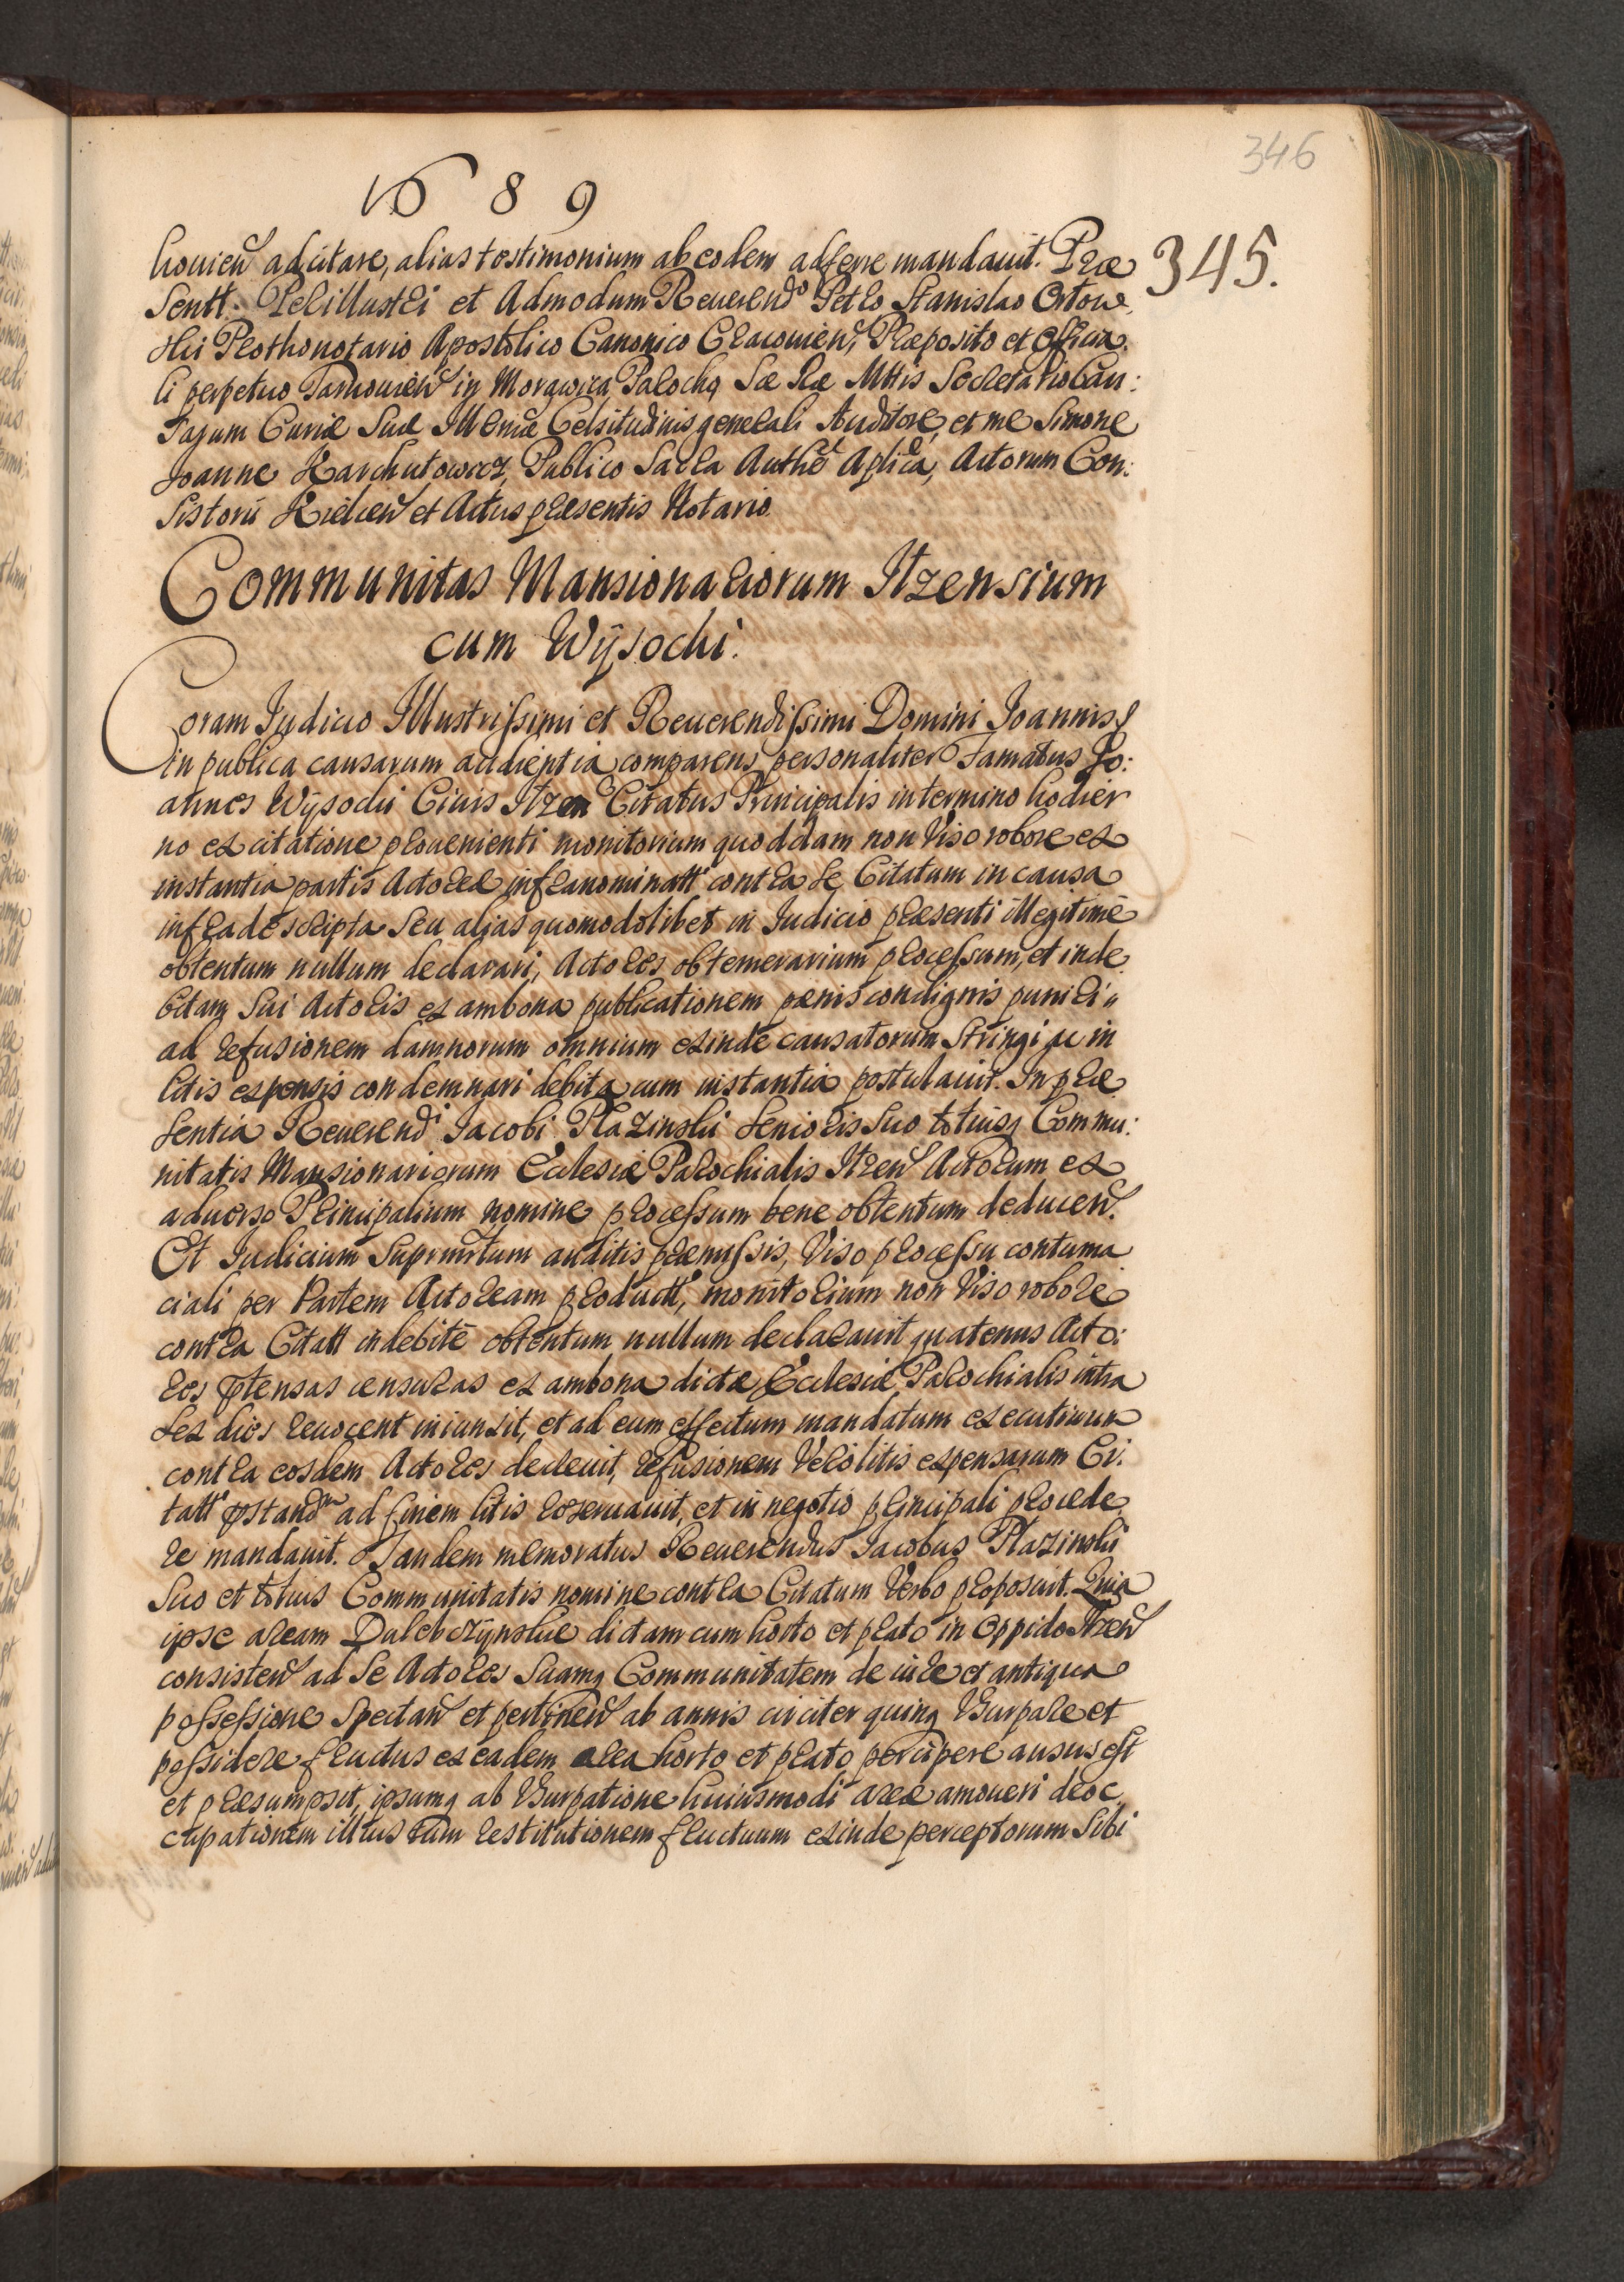 346
1689
345.
houien adcitare, alias testimonium ab eodem adferre mandauit. Præ
sentt. Perillustri et Admodum Reuerendo Petro Stanislao Orłow,
ski Prothonotario Apostolico Canonico Cracouien, Præposito et Officia.
li perpetuo Tarnouien in Morawica Parocho, Sæ Ræ Mttis Secretario Cau:
sarum Curiæ Suæ Illmæ Celsitudinis generali Auditore, et me Simone
Joanne Karchutowicz, Publico Sacra Authe Aplica, Actorum Con:
sistorii Kielcen et Actus præsentis Notario
Communitas Mansionariorum Itzensium
cum Wÿsocki.
Coram Judicio Illustrissimi et Reuerendissimi Domini Joannis
in publica causarum audientia comparens personaliter Famatus Jo:
annes Wÿsocki Ciuis Itzen Citatus Principalis in termino hodier
no ex citatione prouenienti monitorium quoddam non Viso robore ex
instantia partis Actoreæ infranominatt contra se Citatum in causa
infradescripta seu alias quomodolibet in Judicio præsenti illegitime
obtentum nullum declarari, Actores ob temerarium processum, et inde
bitam sui Actoris ex ambona publicationem pænis condignis puniri
ad refusionem damnorum omnium exinde causatorum stringi ac in
litis expensis condemnari debita cum instantia postulauit. In præ
sentia Reuerendi Jacobi Płazinski Senioris suo totiusq Commu:
nitatis Mansionariorum Ecclesiæ Parochialis Itzen Actorum ex
aduerso Principalium nomine processum bene obtentum deducen.
Et Judicium Suprmtum auditis præmissis, Viso processu contuma
ciali per Partem Actoream productt, monitorium non Viso robore
contra Citatt indebite obtentum nullum declarauit quatenus Acto:
res ptensas censuras ex ambona dictæ Ecclesiæ Parochialis intra
sex dies reuocent iniunxit, et ad eum effectum mandatum executiuum
contra eosdem Actores decreuit, refusionem Vero litis expensarum Ci:
tatt pstandm ad finem litis reseruauit, et in negotio principali procede
re mandauit. Tandem memoratus Reuerendus Jacobus Płazinski
Suo et totius Communitatis nomine contra Citatum Verbo proposuit. Quia
ipse aream Dulebczÿnskie dictam cum horto et prato in Oppido Itzen
consisten ad se Actores Suamq Communitatem de iure et antiqua
possessione spectan et pertinen ab annis circiter quinq Vsurpare et
possidere fructus ex eadem area horto et prato percipere ausus est
et præsumpsit, ipsumq ab Vsurpatione huiusmodi areæ amoueri deoc,
cupationem illius tum restitutionem fructuum exinde perceptorum Sibi